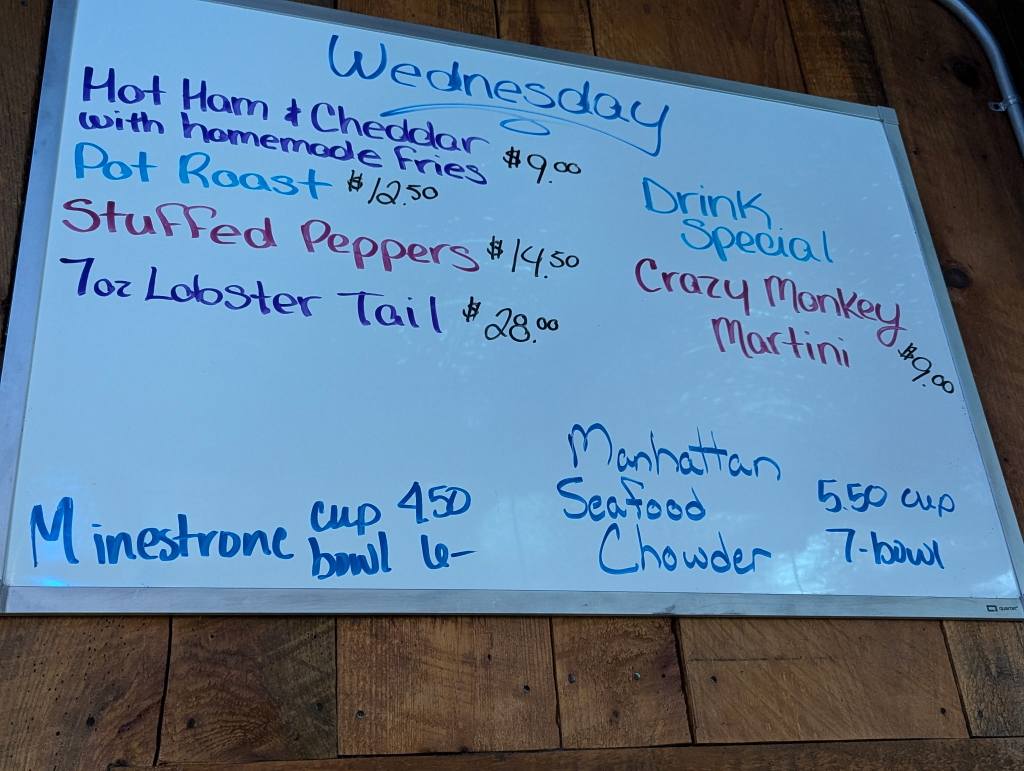 Wednesday
Hot Ham & Cheddar
with homemade fries $9.00
Pot Roast $12.50
Stuffed Peppers $14.50
7oz Lobster Tail $28.00
Drink
Special
Crazy Monkey
Martini $9.00
Minestrone cup 4.50
bowl 6-
Manhattan
Seafood 5.50 cup
Chowder 7-bowl
quartet